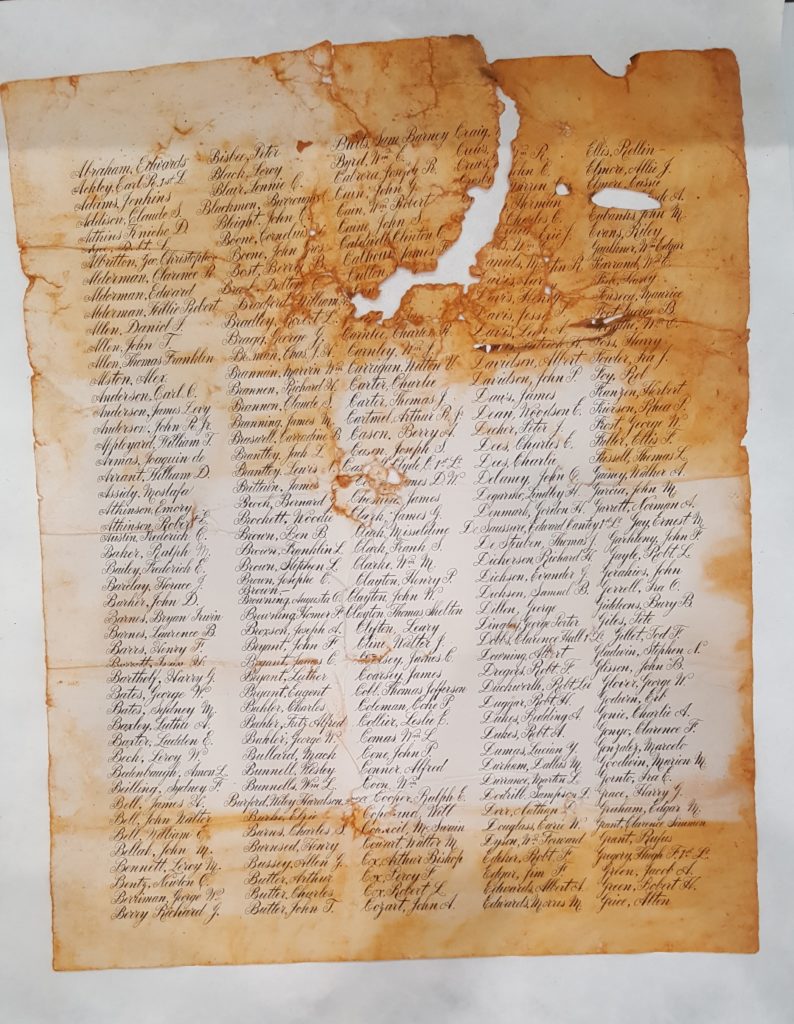 Abraham, Edwards
Ashley, Earl R. 1st L.
Adams, Jenkins
Addison, Claude S.
Athins Kniche D.
Albritton, Joe Christopher
Alderman, Clarence R.
Alderman, Edward
Alderman, Robert
Allen, Daniel J.
Allen, John T.
Allen, Thomas Franklin
Alston, Alex
Anderson, Carl C.
Anderson, James Levy
Anderson, John R. Jr.
Appleyard, William T.
Armas, Joaquin de
Arrant, William D.
Assidy, Mostafa
Atkinson, Emory
Atkinson, Robert E.
Austin, Frederich C.
Baker, Ralph M.
Bailey, Frederich E.
Barclay, Horace J.
Barker, John D.
Barnes, Bryan Irwin
Barnes, Lawrence B.
Barrs, Henry F.
W.
Bartholf, Harry G.
Bates, George W.
Bates, Sydney M.
Baxley, Luther A.
Baxter, Ladden E.
Bech, Leroy W.
Bedenbaugh, Amon L.
Beilling, Sydney F.
Bell, James A.
Bell, John Walter
Bell, William C.
Bellah, John M.
Bennett, Leroy M.
Bentz, Newton C.
Berriman, George W.
Berry Richard J.
Bisbee, Peter
Black, Leroy
Blair, Jennie C.
Blackmon, Burroughs
Bleight, John C.
Boone, Cornelius
Boone, John
Bost, Berry B.
Dalton C.
Bradford, William
Bradley, Robert L.
Bragg, George J.
Chas. J. A.
Brannan, Marvin Wm.
Brannen, Richard H.
Brannon, Claude S.
Branning, James M.
Braswell, Carradine B.
Brantley, Jack L.
Brantley, Lewis
Brittain, James
Bernard
Brockett, Woodie
Brown, Ben B.
Brown, Franklin L.
Brown, Stephen L.
Brown, Josephe C.
Brown-
Browning, Augusta C.
Browning Homer P.
Broxson, Joseph A.
Bryant, John F.
Bryant, James C.
Bryant, Luther
Bryant, Eugent
Buhler, Charles
Buhler, Fritz Alfred
Buhler, George W.
Bullard, Mack
Bunnell, Wesley
Bunnells, Wm. L.
Burford, Wiley Haralson
Burke, Elzie
Burns, Charles S.
Burnsed, Henry
Bussey, Allen J.
Butler, Arthur
Butler, Charles
Butler, John T.
Butts, Sam Barney
Byrd, Wm. C.
Cabrera, Joseph R.
Cain, John G.
Cain, Wm. Robert
Cain, John S.
Clinton C.
Calhoun, James F.
Charles R.
Carnley, Wm. J.
Carragan, Walton V.
Carter, Charlie
Carter, Thomas J.
Cartmel, Arthur R. J.
Cason, Berry A.
Cason, Joseph S.
Clyde C. 1st L.
James D. W.
James
Clark, James G.
Clark, Misseldine
Clark, Frank S.
Clarke, Wm. M.
Clayton, Henry P.
Clayton, John W.
Clayton Thomas Skelton
Clyften, Leary
Cline, Walter J.
James C.
Coarsey, James
Cobb, Thomas Jefferson
Coleman, Cohe P.
Collier, Leslie E.
Comas Wm. L.
Cone, John P.
Conner, Alfred
Coon, Wm.
Cooper, Ralph E.
Copeland, Will
McSwain
Cowart, Walter M.
Cox, Arthur Bishop
Cox, Leroy F.
Cox, Robert L.
Cozart, John A.
Craig,
Crews, Wm. R.
Crews, John C.
Crosby
Sherman
Charles C.
Daniels, R.
Davis,
Davis, Henry
Davis, Jessy
Davis, Leon A.
Davidson, Albert
Davidson, John P.
Davis, James
Dean, Woodson C.
Decker, Peter J.
Dees, Charles E.
Dees, Charlie
Delaney, John C.
Legarhe, Lindley H.
Denmark, Gordon H.
De Saussure, Edward Cantey 1st L.
De Steuben, Thomas J.
Dickerson Richard H.
Dickson, Evander G.
Dickson, Samuel B.
Dillon, George
Dingles, George Porter
Dobbs, Clarence Hall 1st L.
Downing, Albert
Dregors, Robt. F.
Duckworth, Robt. Lee
Duggar, Robt. H.
Dukes, Redding A.
Dukes, Robt. A.
Dumas, Lucien Y.
Durham, Dallis M.
Durrance, Martin L.
Dodrill, Sampson L.
Dorr, Nathan
Douglass, Carii W.
Dyson, Wm. Forward
Edeker, Robt. F.
Edgar, Jim F.
Edwards, Albert A.
Edwards, Morris M.
Ellis, Rollin-
Elmore, Allie J.
Elmore, Cassie
A.
Eubanks, John M.
Evans, Riley
Faulkner, Wm. Edgar
Farrand, Wm. E.
Fonseca, Maurice
B.
Wm. C.
Foss, Harry
Fowler, Ira J.
Foy, Rol
Franzen, Herbert
Frierson, Rhea S.
Frost, George W.
Fuller, Ellis F.
Fussell, Thomas L.
Gainey, Walker A.
Garcia, John M.
Garrett, Norman A.
Gay, Ernest M.
Garhleng, John F.
Gayle, Robt. L.
Gerakios, John
Gerrell, Ira C.
Giddens, Bury B.
Giles, Pete
Gillet, Ted F.
Gladwin, Stephen N.
Glisson, John B.
Glover, George W.
Godwin, Erl
Gonie, Charlie A.
Gonyo, Clarence F.
Gonzalez, Marcelo
Goodwin, Marion M.
Gornto, Ira C.
Grace, Harry G.
Graham, Edgar M.
Grant, Clarence Simmion
Grant, Rufus
Gregory, Hugh F. 1st L.
Green, Jacob A.
Green, Robert H.
Grice, Alton